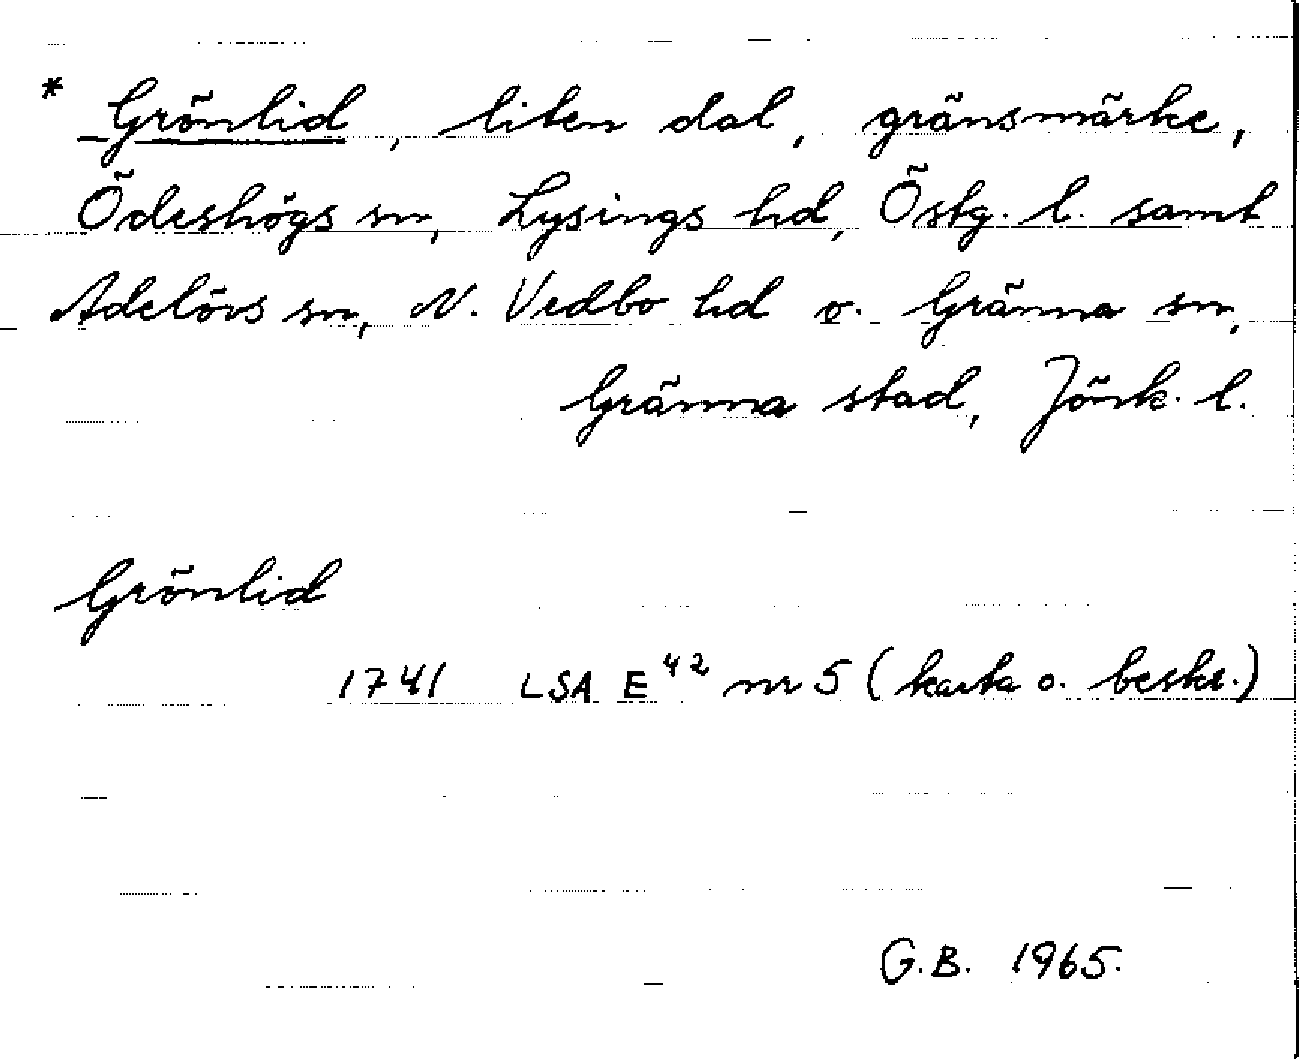 * Grönlid, liten dal, gränsmärke,
Ödeshögs sn, Lysings hd, Östg. l. samt
Adelövs sn, N. Vedbo hd o. Gränna sn,
Gränna stad, Jönk. l.
Grönlid
1741 LSA E⁴² nr 5 (karta o. beskr.)
G.B. 1965.